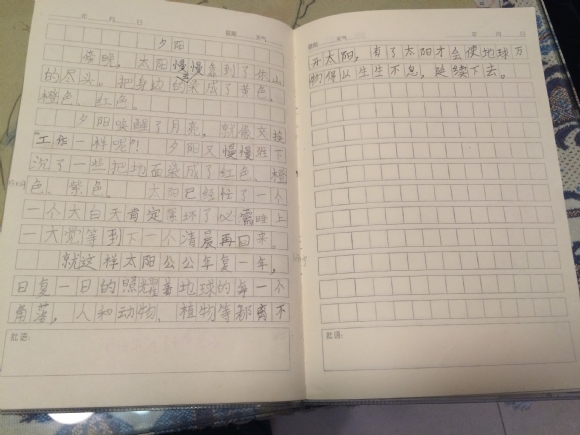 年 月 日 星期 天气
夕阳
傍晚,太阳慢慢靠到了
的尽头。把身边的染成了黄色、
橙色、红色。
夕阳唤醒了月亮。就像交换
"工作一样呢!夕阳又慢慢往下
沉了一些把地面染成了红色、橙
色、紫色。太阳已经忙了一个
一个大白天肯定累坏了 需睡上
一大觉等到下一个清晨再回来。
就这样太阳公公年复一年,
日复一日的照耀着地球的每一个
角落,人和动物、植物等都离不
批语:
星期 天气 年 月 日
开太阳,有了太阳才会使地球万
物得以生生不息,延续下去。
批语: